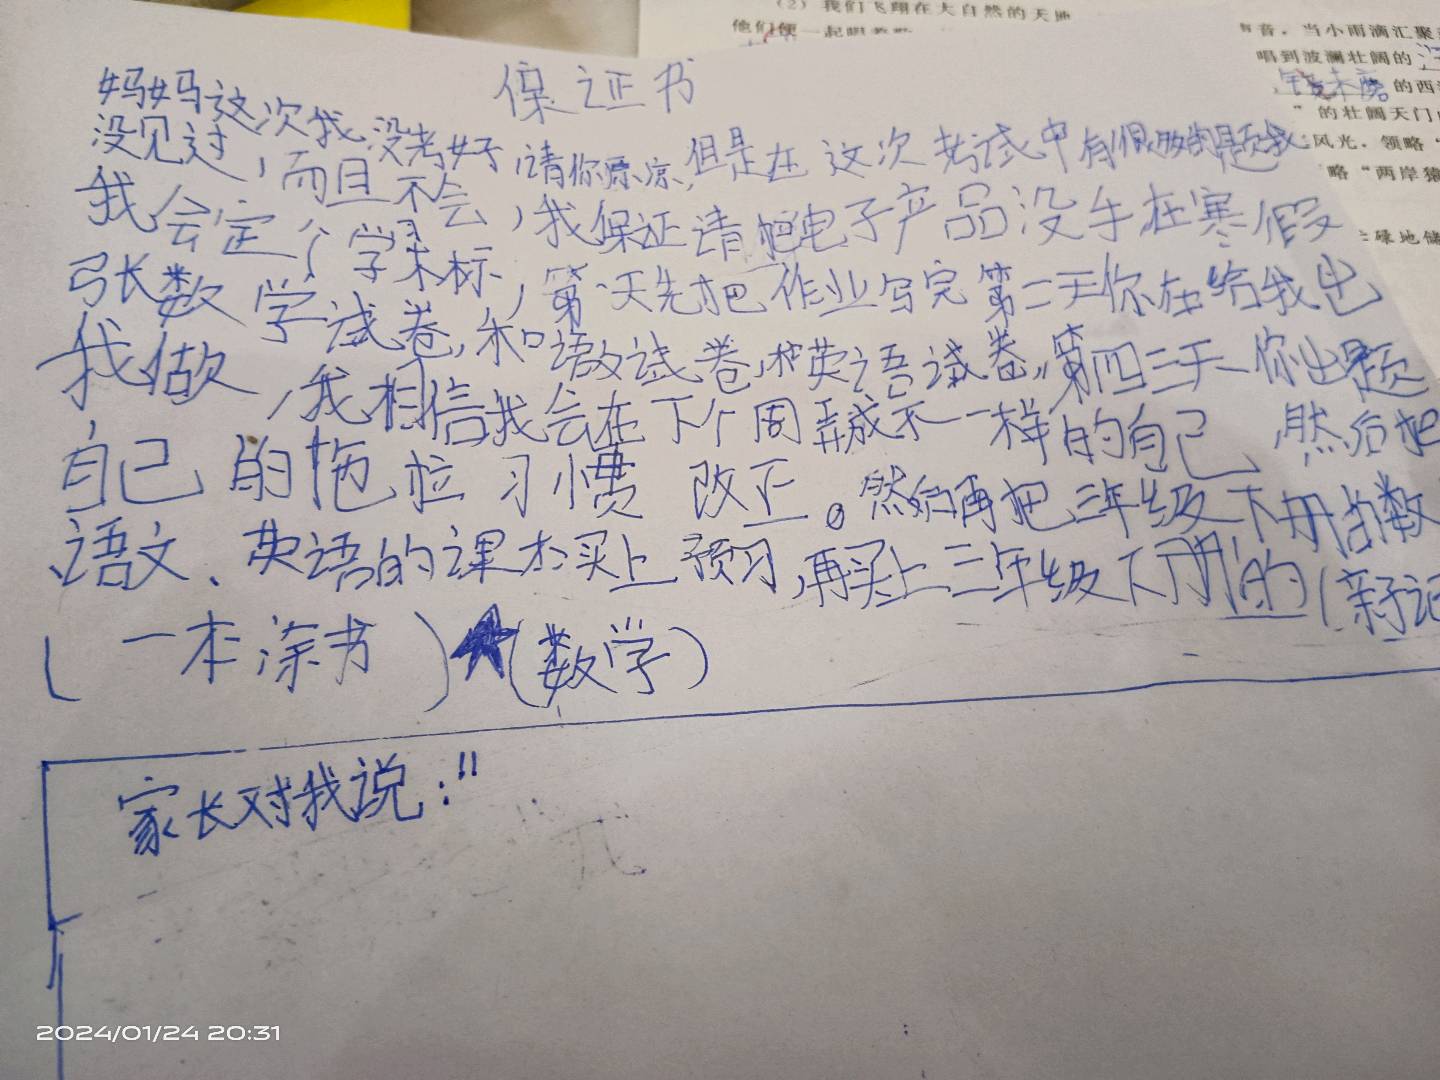 (2) 我们飞翔在大自然的天地
他们便一起唱着歌
有音，当小雨滴汇聚
唱到波澜壮阔的
的西
”的壮阔天门
风光，领略“
略“两岸猿
碌地储
保证书
妈妈这次我没考好,请你原凉,但是在这次考试中有很多的题我
没见过,而且不会,我保证请把电子产品没手在寒假
我会定个学习目标,第一天先把作业写完第二天你在给我出
张数学试卷,和语文试卷,和英语试卷,第三天你出题
我做,我相信我会在下个周弄成不一样的自己,然后把
自己的拖拉习惯改正。然后再把三年级下册的数
语文、英语的课本买上预习,再买上三年级下册的(亲子记
(一本涂书)★(数学)
家长对我说:"
2024/01/24 20:31